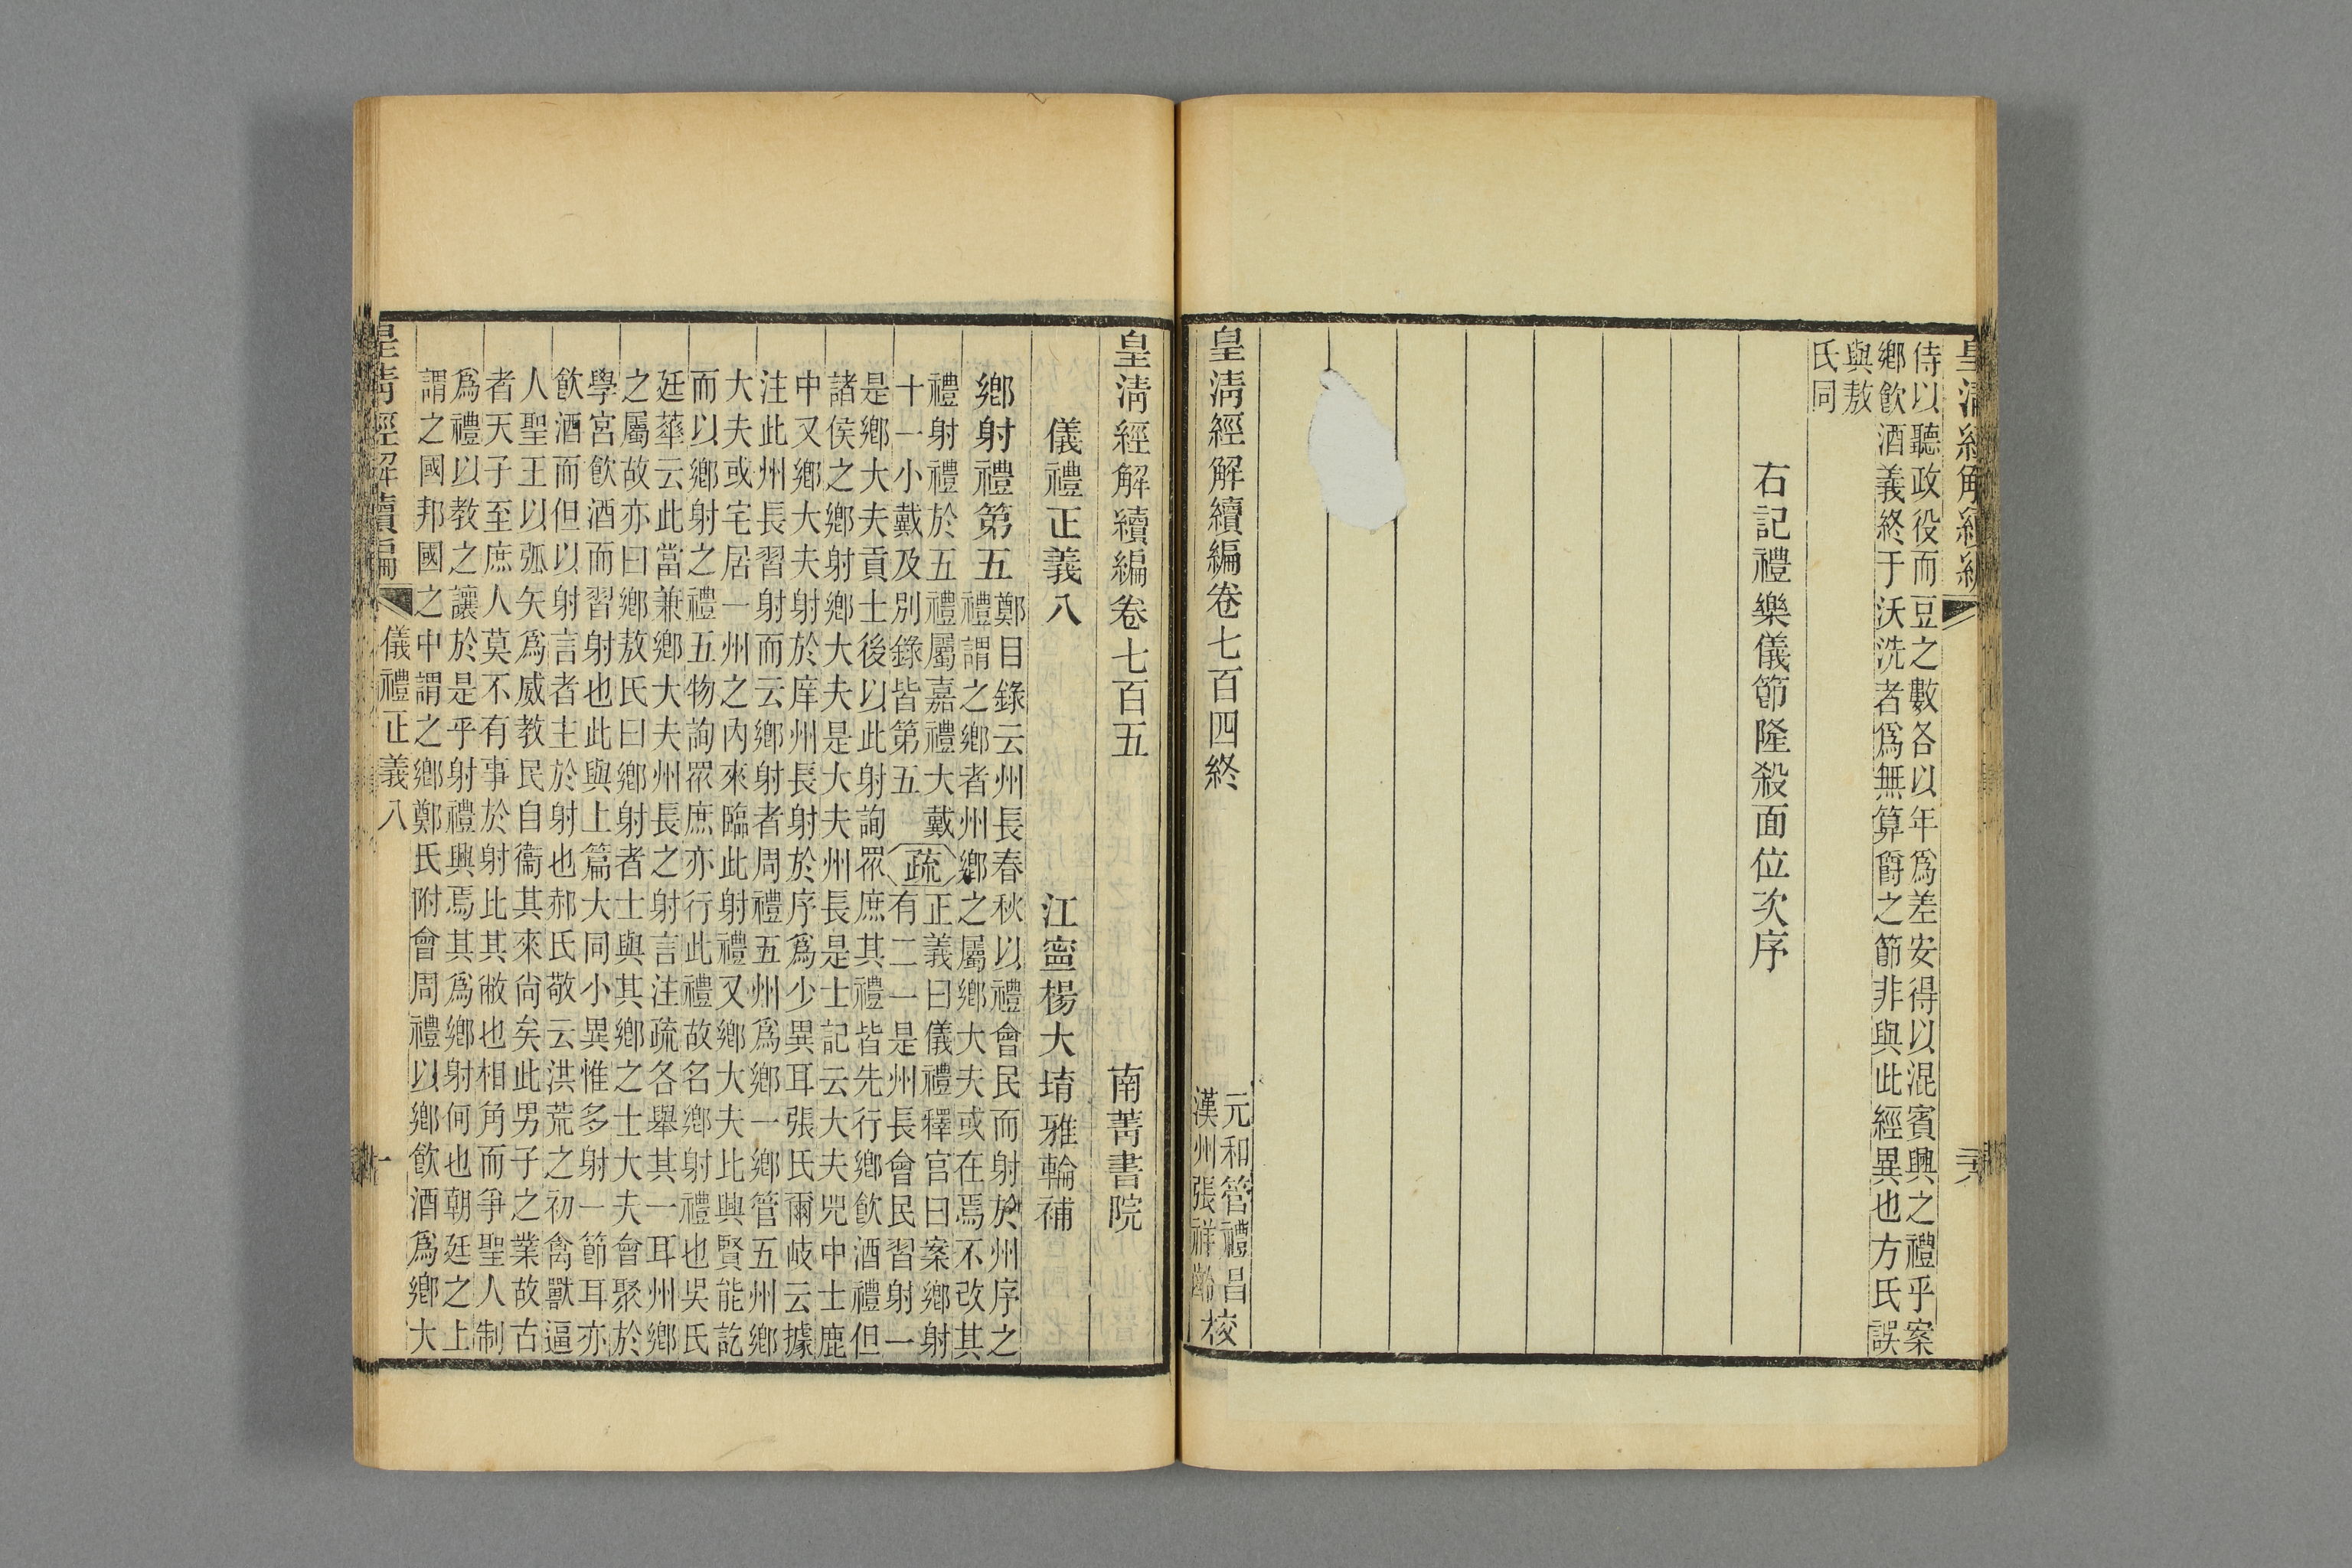 皇清經解續編
三六
侍以聽政役而豆之數各以年爲差安得以混賓興之禮乎案
鄉飲酒義終于沃洗者爲無算爵之節非與此經異也方氏誤
與敖
氏同
右記禮樂儀節隆殺面位次序
皇清經解續編卷七百四終
元和管禮昌
漢州張祥齡
校
皇清經解續編卷七百五
南菁書院
儀禮正義八
江寧楊大堉雅輪補
鄉射禮第五
鄭目錄云州長春秋以禮會民而射於州序之
禮謂之鄉者州鄉之屬鄉大夫或在焉不改其
禮射禮於五禮屬嘉禮大戴
十一小戴及別錄皆第五
疏
正義曰儀禮釋官曰案鄉射
有二一是州長會民習射一
是鄉大夫貢士後以此射詢眾庶其禮皆先行鄉飲酒禮但
諸侯之鄉射鄉大夫是大夫州長是士記云大夫兕中士鹿
中又鄉大夫射於庠州長射於序爲少異耳張氏爾岐云據
注此州長習射而云鄉射者周禮五州爲鄉一鄉管五州鄉
大夫或宅居一州之內來臨此射禮又鄉大夫比興賢能訖
而以鄉射之禮五物詢眾庶亦行此禮故名鄉射禮也吳氏
廷華云此當兼鄉大夫州長之射言注疏各舉其一耳州鄉
之屬故亦曰鄉敖氏曰鄉射者士與其鄉之士大夫會聚於
學宮飲酒而習射也此與上篇大同小異惟多射一節耳亦
飲酒而但以射言者主於射也郝氏敬云洪荒之初禽獸逼
人聖王以弧矢爲威教民自衞其來尙矣此男子之業故古
者天子至庶人莫不有事於射比其敝也相角而爭聖人制
爲禮以教之讓於是乎射禮興焉其爲鄉射何也朝廷之上
謂之國邦國之中謂之鄉鄭氏附會周禮以鄉飲酒爲鄉大
皇清經解續編
儀禮正義八
一